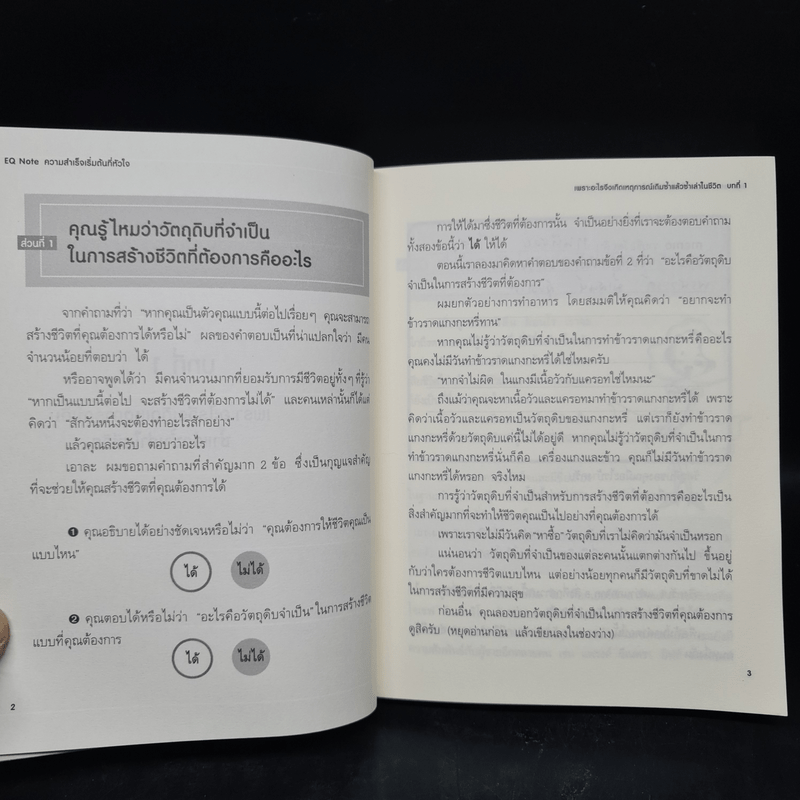 EQ Note ความสำเร็จเริ่มต้นที่หัวใจ
ส่วนที่ 1
คุณรู้ไหมว่าวัตถุดิบที่จำเป็น
ในการสร้างชีวิตที่ต้องการคืออะไร
จากคำถามที่ว่า “หากคุณเป็นตัวคุณแบบนี้ต่อไปเรื่อยๆ คุณจะสามารถ
สร้างชีวิตที่คุณต้องการได้หรือไม่” ผลของคำตอบเป็นที่น่าแปลกใจว่า มีคน
จำนวนน้อยที่ตอบว่า ได้
หรืออาจพูดได้ว่า มีคนจำนวนมากที่ยอมรับการมีชีวิตอยู่ทั้งๆ ที่รู้ว่า
“หากเป็นแบบนี้ต่อไป จะสร้างชีวิตที่ต้องการไม่ได้” และคนเหล่านั้นก็ได้แต่
คิดว่า “สักวันหนึ่งจะต้องทำอะไรสักอย่าง”
แล้วคุณล่ะครับ ตอบว่าอะไร
เอาละ ผมขอถามคำถามที่สำคัญมาก 2 ข้อ ซึ่งเป็นกุญแจสำคัญ
ที่จะช่วยให้คุณสร้างชีวิตที่คุณต้องการได้
❶ คุณอธิบายได้อย่างชัดเจนหรือไม่ว่า “คุณต้องการให้ชีวิตคุณเป็น
แบบไหน”
ได้ ไม่ได้
❷ คุณตอบได้หรือไม่ว่า “อะไรคือวัตถุดิบจำเป็น” ในการสร้างชีวิต
แบบที่คุณต้องการ
ได้ ไม่ได้
2
เพราะอะไรจึงเกิดเหตุการณ์เดิมซ้ำแล้วซ้ำเล่าในชีวิต บทที่ 1
การให้ได้มาซึ่งชีวิตที่ต้องการนั้น จำเป็นอย่างยิ่งที่เราจะต้องตอบคำถาม
ทั้งสองข้อนี้ว่า ได้ ให้ได้
ตอนนี้เราลองมาคิดหาคำตอบของคำถามข้อที่ 2 ที่ว่า “อะไรคือวัตถุดิบ
จำเป็นในการสร้างชีวิตที่ต้องการ”
ผมยกตัวอย่างการทำอาหาร โดยสมมติให้คุณคิดว่า “อยากจะทำ
ข้าวราดแกงกะหรี่ทาน”
หากคุณไม่รู้ว่าวัตถุดิบที่จำเป็นในการทำข้าวราดแกงกะหรี่คืออะไร
คุณคงไม่มีวันทำข้าวราดแกงกะหรี่ได้ใช่ไหมครับ
“หากจำไม่ผิด ในแกงมีเนื้อวัวกับแครอทใช่ไหมนะ”
ถึงแม้ว่าคุณจะหาเนื้อวัวและแครอทมาทำข้าวราดแกงกะหรี่ได้ เพราะ
คิดว่าเนื้อวัวและแครอทเป็นวัตถุดิบของแกงกะหรี่ แต่เราก็ยังทำข้าวราด
แกงกะหรี่ด้วยวัตถุดิบแค่นี้ไม่ได้อยู่ดี หากคุณไม่รู้ว่าวัตถุดิบที่จำเป็นในการ
ทำข้าวราดแกงกะหรี่นั่นก็คือ เครื่องแกงและข้าว คุณก็ไม่มีวันทำข้าวราด
แกงกะหรี่ได้หรอก จริงไหม
การรู้ว่าวัตถุดิบที่จำเป็นสำหรับการสร้างชีวิตที่ต้องการคืออะไรเป็น
สิ่งสำคัญมากที่จะทำให้ชีวิตคุณเป็นไปอย่างที่คุณต้องการได้
เพราะเราจะไม่มีวันคิด “หาซื้อ” วัตถุดิบที่เราไม่คิดว่ามันจำเป็นหรอก
แน่นอนว่า วัตถุดิบที่จำเป็นของแต่ละคนนั้นแตกต่างกันไป ขึ้นอยู่
กับว่าใครต้องการชีวิตแบบไหน แต่อย่างน้อยทุกคนก็มีวัตถุดิบที่ขาดไม่ได้
ในการสร้างชีวิตที่มีความสุข
ก่อนอื่น คุณลองบอกวัตถุดิบที่จำเป็นในการสร้างชีวิตที่คุณต้องการ
ดูสิครับ (หยุดอ่านก่อน แล้วเขียนลงในช่องว่าง)
3